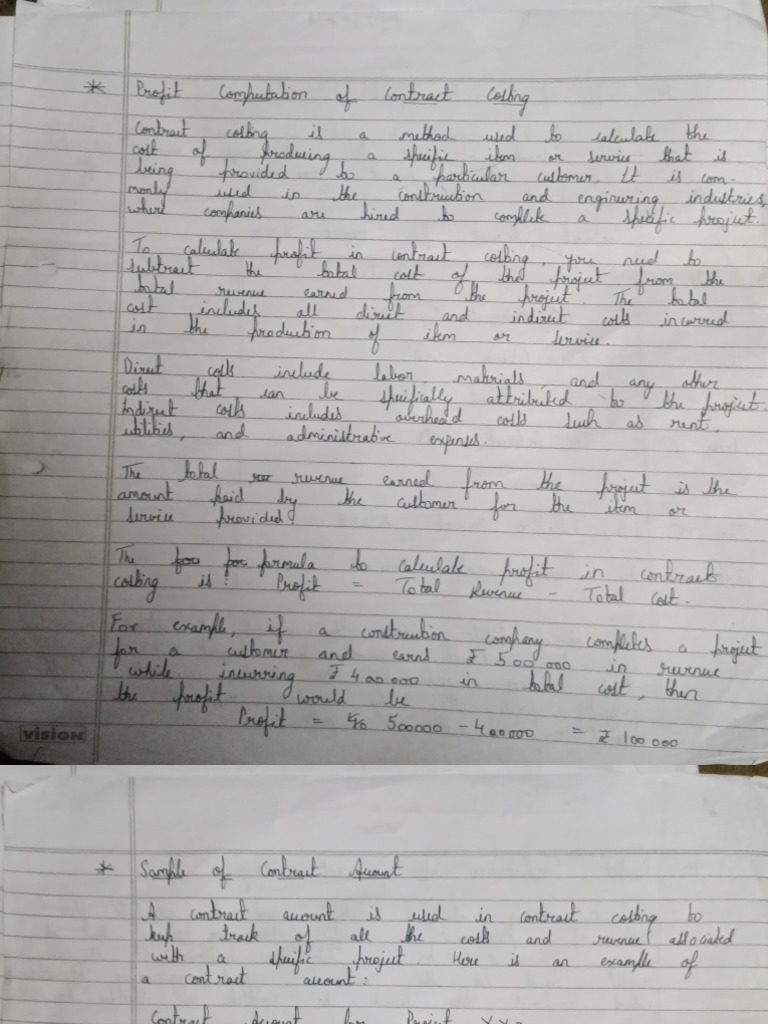 * Profit Computation of Contract Costing
Contract costing is a method used to calculate the
cost of producing a specific item or service that is
being provided to a particular customer. It is com-
monly used in the construction and engineering industries,
where companies are hired to complete a specific project.
To calculate profit in contract costing, you need to
subtract the total cost of the project from the
total revenue earned from the project. The total
cost includes all direct and indirect costs incurred
in the production of item or service.
Direct costs include labor materials, and any other
costs that can be specifically attributed to the project.
Indirect costs includes overhead costs such as rent,
utilities, and administrative expenses.
The total revenue earned from the project is the
amount paid by the customer for the item or
service provided.
The formula to calculate profit in contract
costing is: Profit = Total Revenue - Total Cost.
For example, if a construction company completes a project
for a customer and earns ₹ 500 000 in revenue
while incurring ₹ 400000 in total cost, then
the profit would be
Profit = 500000 - 400000 = ₹ 100 000
VISION
* Sample of Contract Account
A contract account is used in contract costing to
keep track of all the costs and revenue associated
with a specific project. Here is an example of
a contract account:
Contract Account for Project XX-